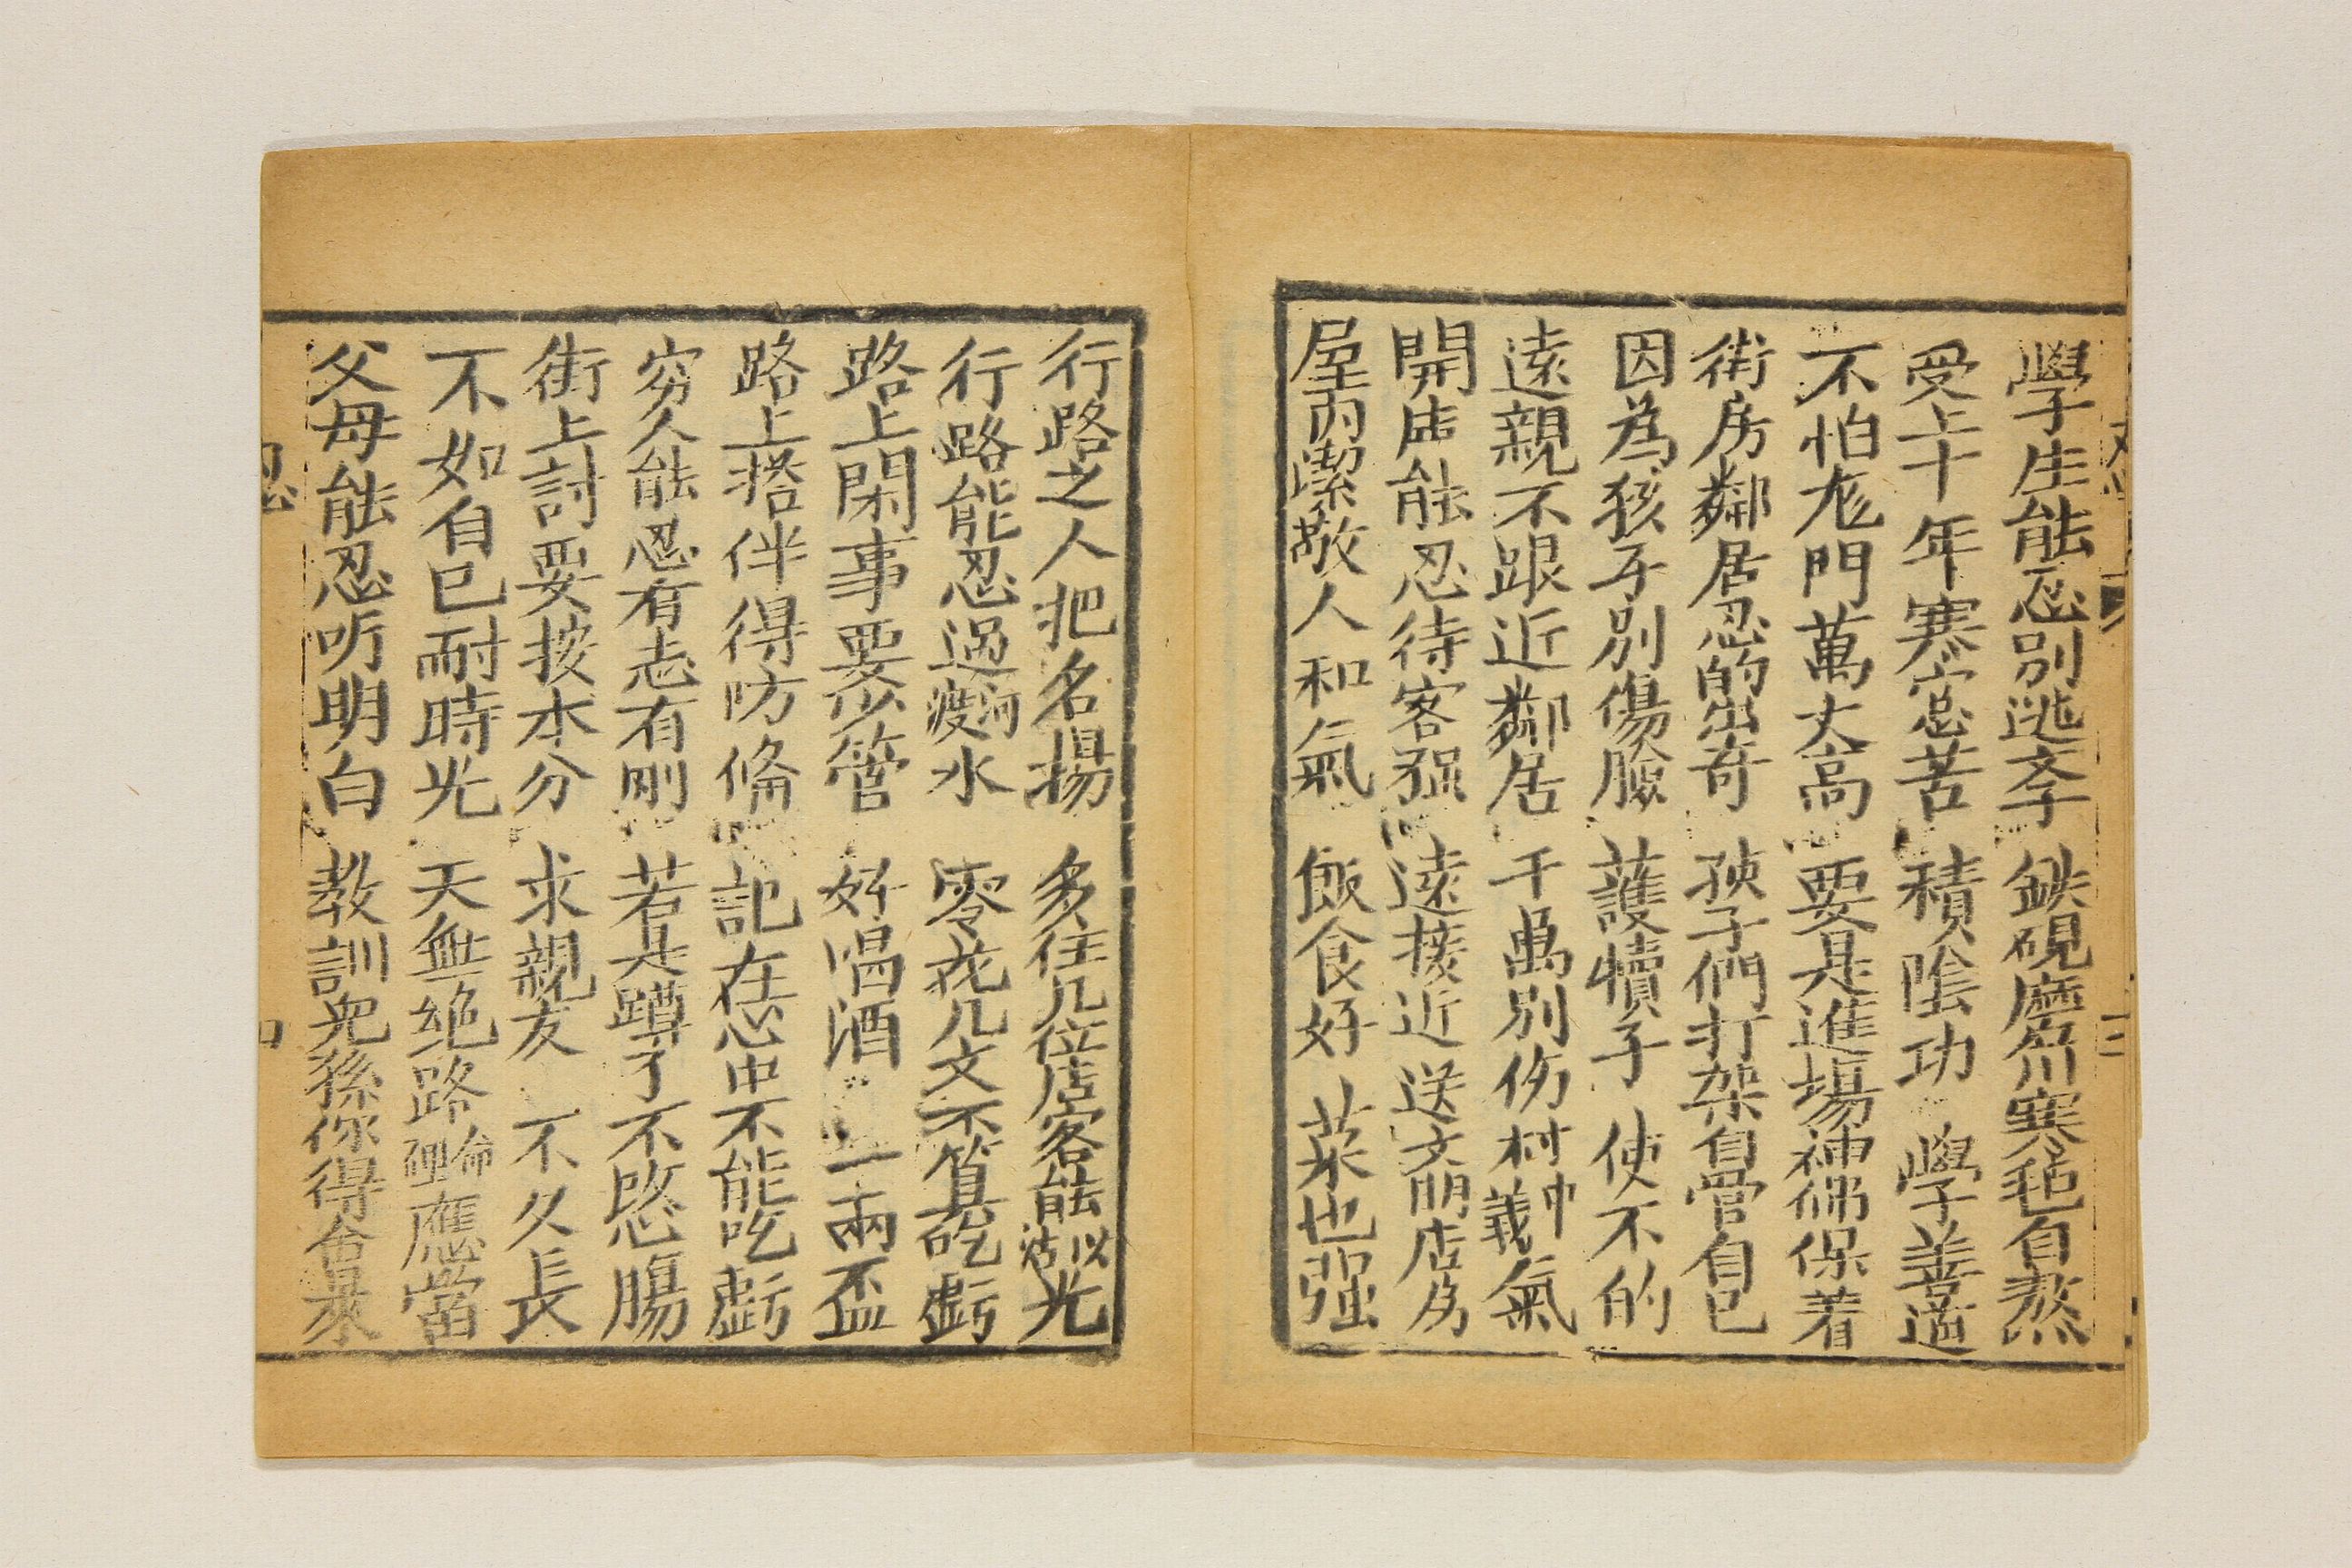 學生能忍别逃李 鉄硯磨穿寒毡自熬
受上十年寒窓苦 積隂功 學善道
不怕龙門萬丈高 要是進場神佛保着
街房鄰居忍的出奇 孩子們打架自管自己
因為孩子别傷臉 護犢子 使不的
遠親不跟近鄰居 千萬别伤村中義氣
開店能忍待客强 遠接近送文明店房
屋內潔敬人和氣 飯食好 菜也强
行路之人把名揚 多住几位店客能以沾光
行路能忍過河渡水 零花几文不算吃虧
路上閑事要少管 好喝酒 一兩盃
路上搭伴得防偹 記在心中不能吃虧
穷人能忍有志有刚 若是蹲了不怨腸
街上討要按本分 求親友 不久長
不如自己耐時光 天無绝路倫理應當
父母能忍听明白 教訓兒孫你得舍來